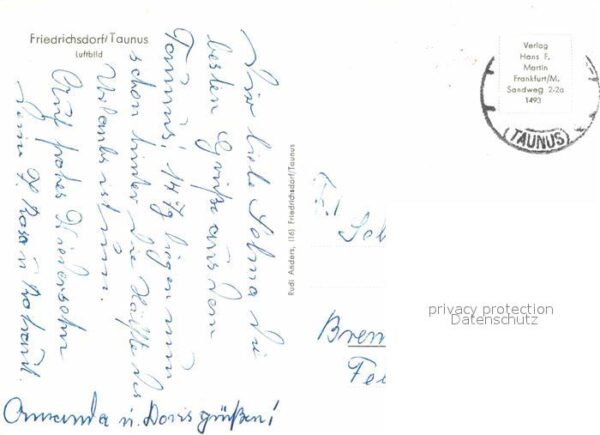 Friedrichsdorf/Taunus
Luftbild
Dir liebe Selma die
besten Grüße aus dem
Taunus, 14 Tg liegen nun
schon hinter die Hälfte des
Urlaubs ist um.
Auf frohes Wiedersehn
Deine Rosa u
Amanda u. Doris grüßen!
Rudi Anders, (16) Friedrichsdorf/Taunus
Verlag
Hans F.
Martin
Frankfurt/M.
Sandweg 2-2a
1493
(TAUNUS)
Frl
Brem
privacy protection
Datenschutz